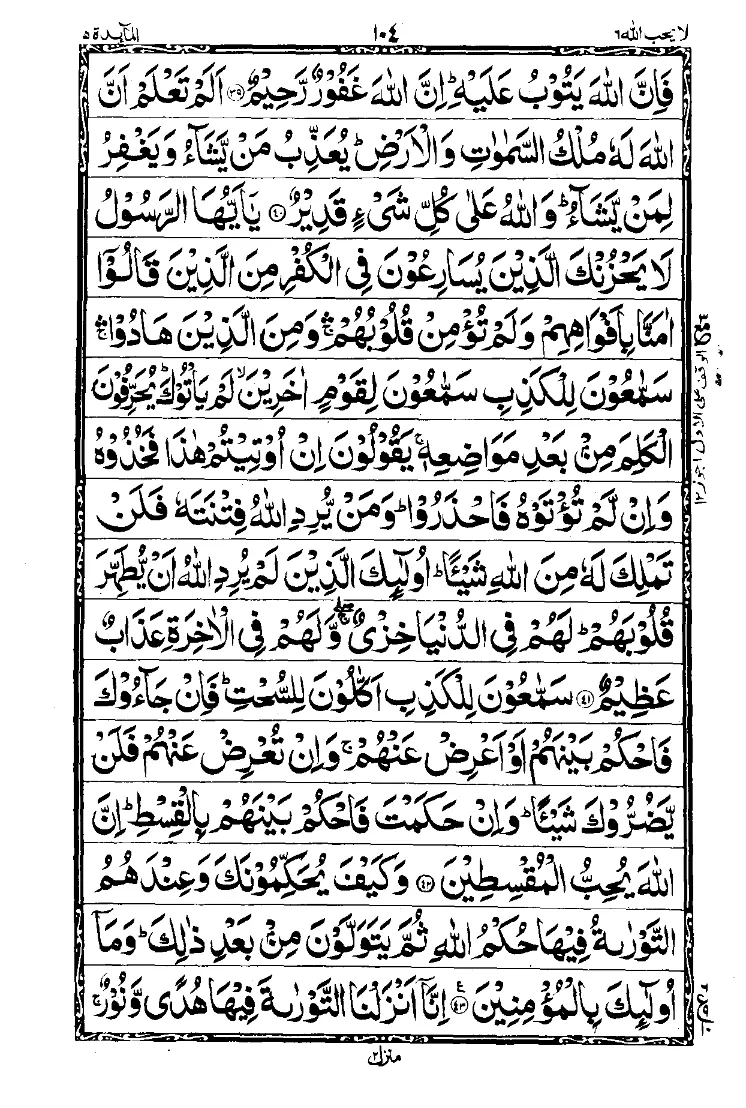 لا يحب الله ٦ ١٠٤ المآىدة ٥
فَاِنَّ اللّٰهَ يَتُوْبُ عَلَيْهِ ؕ اِنَّ اللّٰهَ غَفُوْرٌ رَّحِيْمٌ ﴿۳۹﴾ اَلَمْ تَعْلَمْ اَنَّ
اللّٰهَ لَهٗ مُلْكُ السَّمٰوٰتِ وَالْاَرْضِ ؕ يُعَذِّبُ مَنْ يَّشَآءُ وَيَغْفِرُ
لِمَنْ يَّشَآءُ ؕ وَاللّٰهُ عَلٰى كُلِّ شَىْءٍ قَدِيْرٌ ﴿۴۰﴾ يٰۤاَيُّهَا الرَّسُوْلُ
لَا يَحْزُنْكَ الَّذِيْنَ يُسَارِعُوْنَ فِى الْكُفْرِ مِنَ الَّذِيْنَ قَالُوْۤا
اٰمَنَّا بِاَفْوَاهِهِمْ وَلَمْ تُؤْمِنْ قُلُوْبُهُمْ ۛۚ وَمِنَ الَّذِيْنَ هَادُوْا ۛۚ
سَمّٰعُوْنَ لِلْكَذِبِ سَمّٰعُوْنَ لِقَوْمٍ اٰخَرِيْنَ ۙ لَمْ يَاْتُوْكَ ؕ يُحَرِّفُوْنَ
الْكَلِمَ مِنْۢ بَعْدِ مَوَاضِعِهٖ ۚ يَقُوْلُوْنَ اِنْ اُوْتِيْتُمْ هٰذَا فَخُذُوْهُ
وَاِنْ لَّمْ تُؤْتَوْهُ فَاحْذَرُوْا ؕ وَمَنْ يُّرِدِ اللّٰهُ فِتْنَتَهٗ فَلَنْ
تَمْلِكَ لَهٗ مِنَ اللّٰهِ شَيْئًا ؕ اُولٰٓئِكَ الَّذِيْنَ لَمْ يُرِدِ اللّٰهُ اَنْ يُّطَهِّرَ
قُلُوْبَهُمْ ؕ لَهُمْ فِى الدُّنْيَا خِزْىٌ ۖۚ وَّلَهُمْ فِى الْاٰخِرَةِ عَذَابٌ
عَظِيْمٌ ﴿۴۱﴾ سَمّٰعُوْنَ لِلْكَذِبِ اَكّٰلُوْنَ لِلسُّحْتِ ؕ فَاِنْ جَآءُوْكَ
فَاحْكُمْ بَيْنَهُمْ اَوْ اَعْرِضْ عَنْهُمْ ۚ وَاِنْ تُعْرِضْ عَنْهُمْ فَلَنْ
يَّضُرُّوْكَ شَيْئًا ؕ وَاِنْ حَكَمْتَ فَاحْكُمْ بَيْنَهُمْ بِالْقِسْطِ ؕ اِنَّ
اللّٰهَ يُحِبُّ الْمُقْسِطِيْنَ ﴿۴۲﴾ وَكَيْفَ يُحَكِّمُوْنَكَ وَعِنْدَهُمُ
التَّوْرٰىةُ فِيْهَا حُكْمُ اللّٰهِ ثُمَّ يَتَوَلَّوْنَ مِنْۢ بَعْدِ ذٰلِكَ ؕ وَمَاۤ
اُولٰٓئِكَ بِالْمُؤْمِنِيْنَ ﴿۴۳﴾ ع اِنَّاۤ اَنْزَلْنَا التَّوْرٰىةَ فِيْهَا هُدًى وَّنُوْرٌ ۚ
منزل ٢